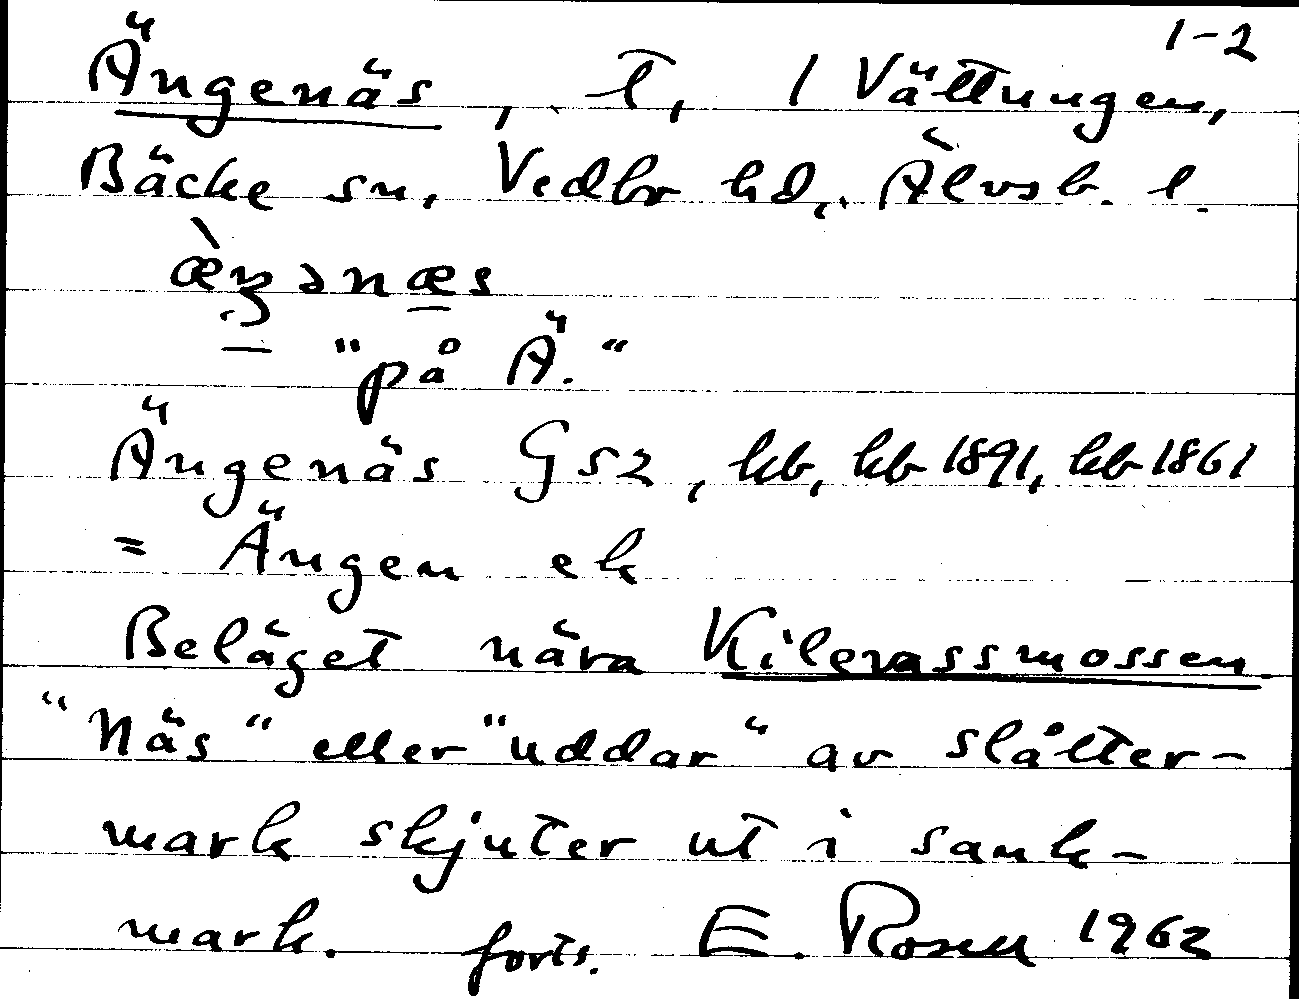 1-2
Ängenäs, t, 1 Vättungen,
Bäcke sn, Vedbo hd, Älvsb. l.
æ̀ŋənæs
"på Ä."
Ängenäs GS2, kb, kb 1891, kb 1861
= Ängen ek
Beläget nära Kilerassmossen.
"Näs" eller "uddar" av slåtter-
mark skjuter ut i sank-
mark. forts. E. Rosell 1962